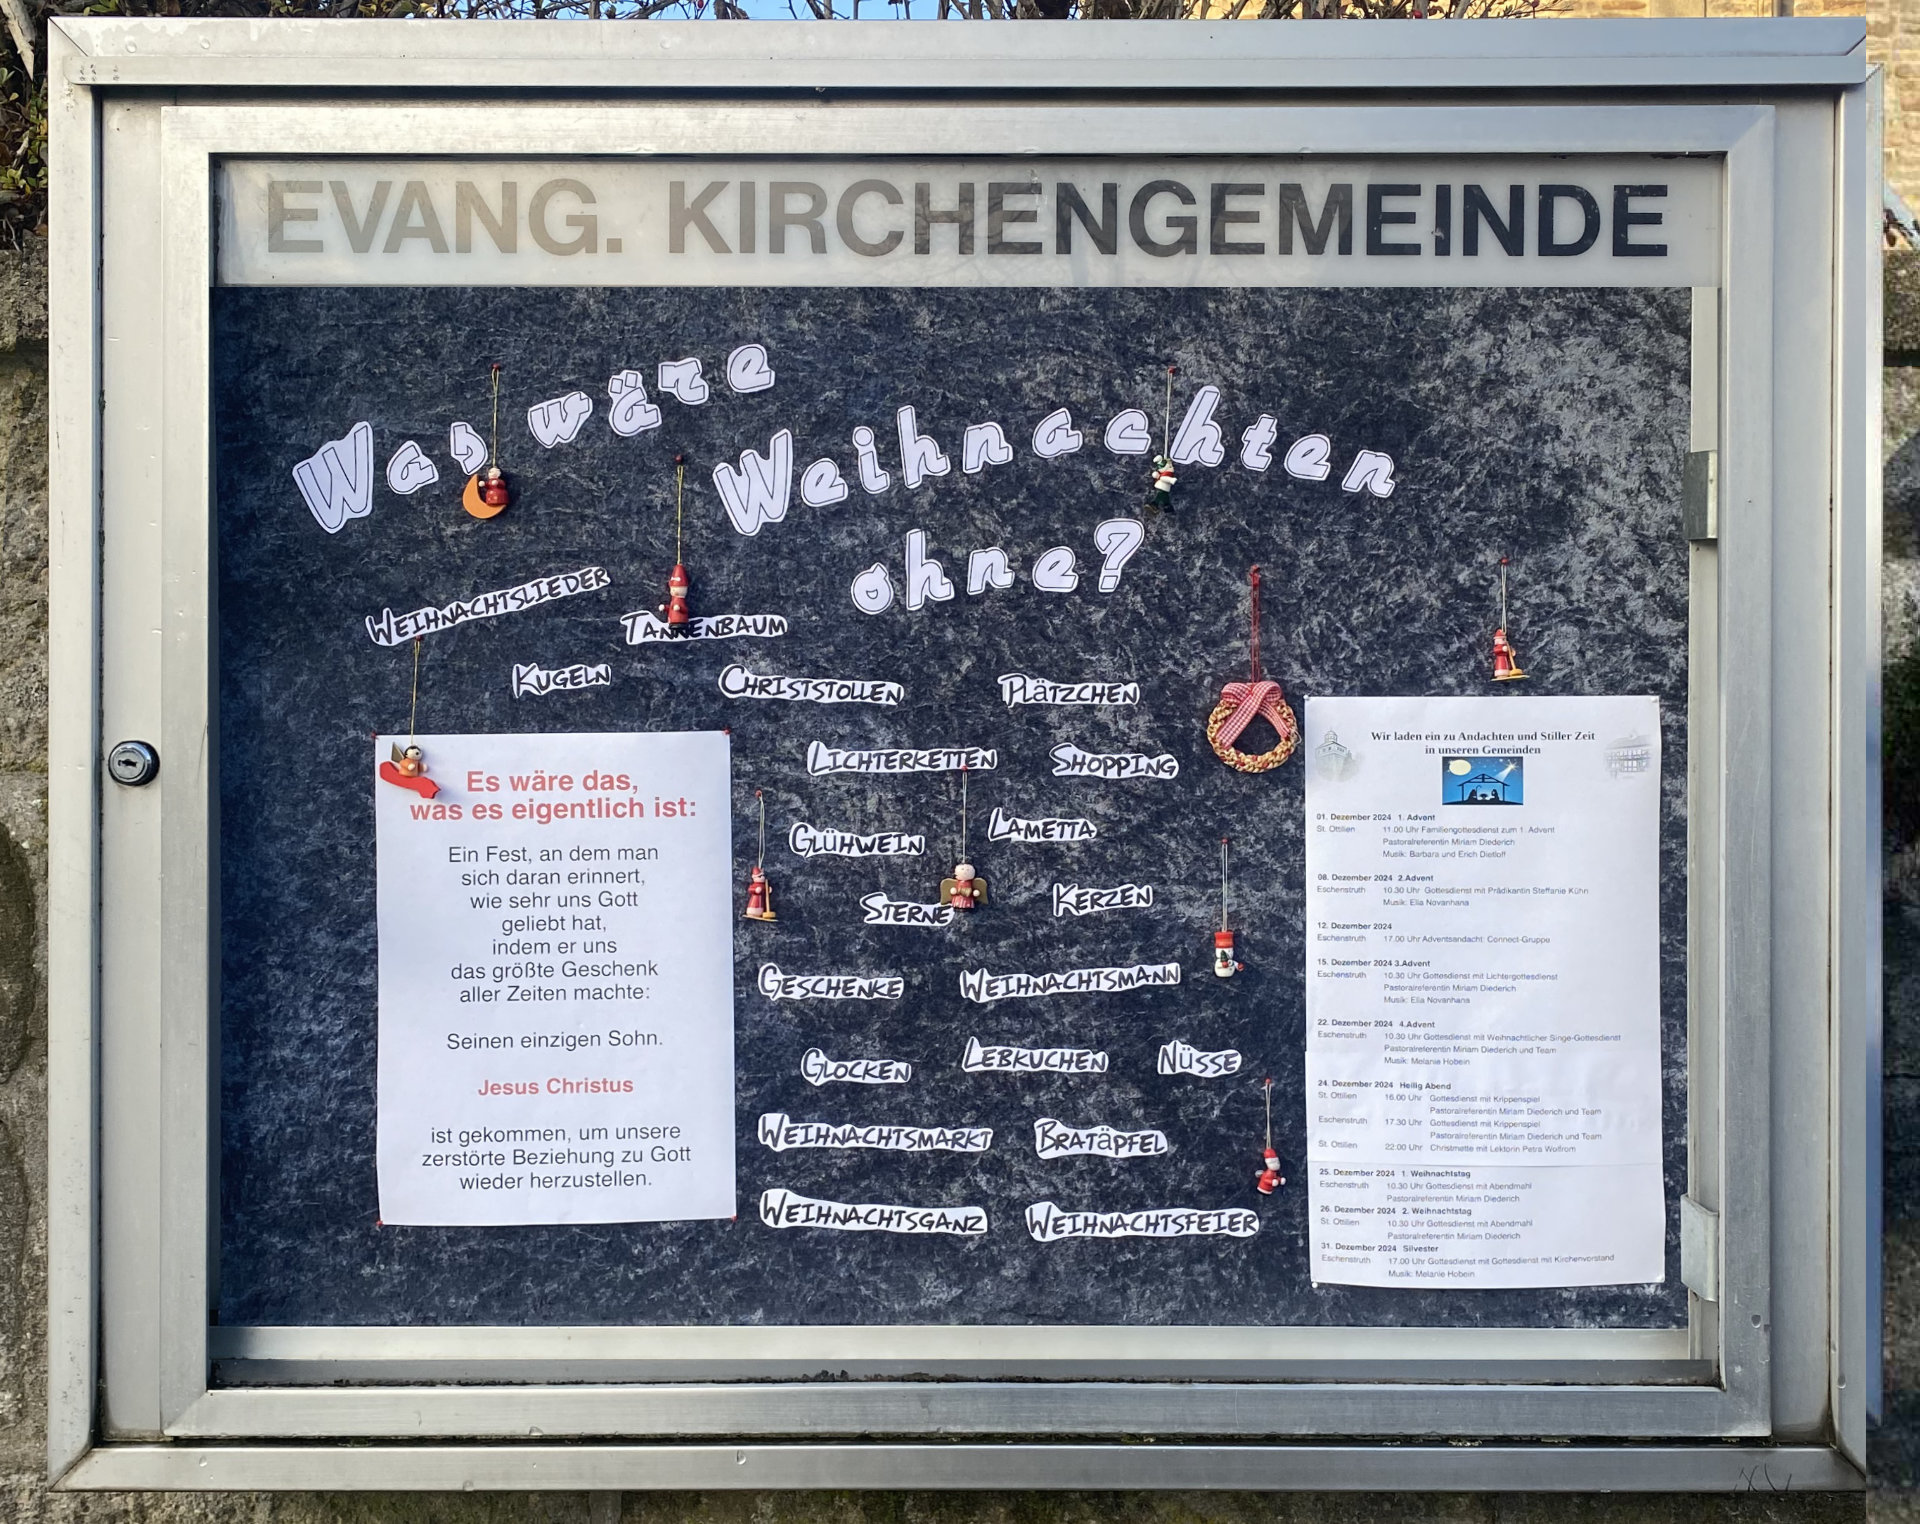 EVANG. KIRCHENGEMEINDE
Was wäre
Weihnachten
ohne?
WEIHNACHTSLIEDER
TANNENBAUM
KUGELN
CHRISTSTOLLEN
PLÄTZCHEN
LICHTERKETTEN
SHOPPING
GLÜHWEIN
LAMETTA
STERNE
KERZEN
GESCHENKE
WEIHNACHTSMANN
GLOCKEN
LEBKUCHEN
NÜSSE
WEIHNACHTSMARKT
BRATÄPFEL
WEIHNACHTSGANZ
WEIHNACHTSFEIER
Es wäre das,
was es eigentlich ist:
Ein Fest, an dem man
sich daran erinnert,
wie sehr uns Gott
geliebt hat,
indem er uns
das größte Geschenk
aller Zeiten machte:
Seinen einzigen Sohn.
Jesus Christus
ist gekommen, um unsere
zerstörte Beziehung zu Gott
wieder herzustellen.
Wir laden ein zu Andachten und Stiller Zeit
in unseren Gemeinden
01. Dezember 2024 1. Advent
St. Ottilien 11.00 Uhr Familiengottesdienst zum 1. Advent
Pastoralreferentin Miriam Diederich
Musik: Barbara und Erich Dietloff
08. Dezember 2024 2.Advent
Eschenstruth 10.30 Uhr Gottesdienst mit Prädikantin Steffanie Kühn
Musik: Elia Novanhana
12. Dezember 2024
Eschenstruth 17.00 Uhr Adventsandacht: Connect-Gruppe
15. Dezember 2024 3.Advent
Eschenstruth 10.30 Uhr Gottesdienst mit Lichtergottesdienst
Pastoralreferentin Miriam Diederich
Musik: Elia Novanhana
22. Dezember 2024 4.Advent
Eschenstruth 10.30 Uhr Gottesdienst mit Weihnachtlicher Singe-Gottesdienst
Pastoralreferentin Miriam Diederich und Team
Musik: Melanie Hobein
24. Dezember 2024 Heilig Abend
St. Ottilien 16.00 Uhr Gottesdienst mit Krippenspiel
Pastoralreferentin Miriam Diederich und Team
Eschenstruth 17.30 Uhr Gottesdienst mit Krippenspiel
Pastoralreferentin Miriam Diederich und Team
St. Ottilien 22:00 Uhr Christmette mit Lektorin Petra Wolfrom
25. Dezember 2024 1. Weihnachtstag
Eschenstruth 10.30 Uhr Gottesdienst mit Abendmahl
Pastoralreferentin Miriam Diederich
26. Dezember 2024 2. Weihnachtstag
St. Ottilien 10.30 Uhr Gottesdienst mit Abendmahl
Pastoralreferentin Miriam Diederich
31. Dezember 2024 Silvester
Eschenstruth 17.00 Uhr Gottesdienst mit Gottesdienst mit Kirchenvorstand
Musik: Melanie Hobein